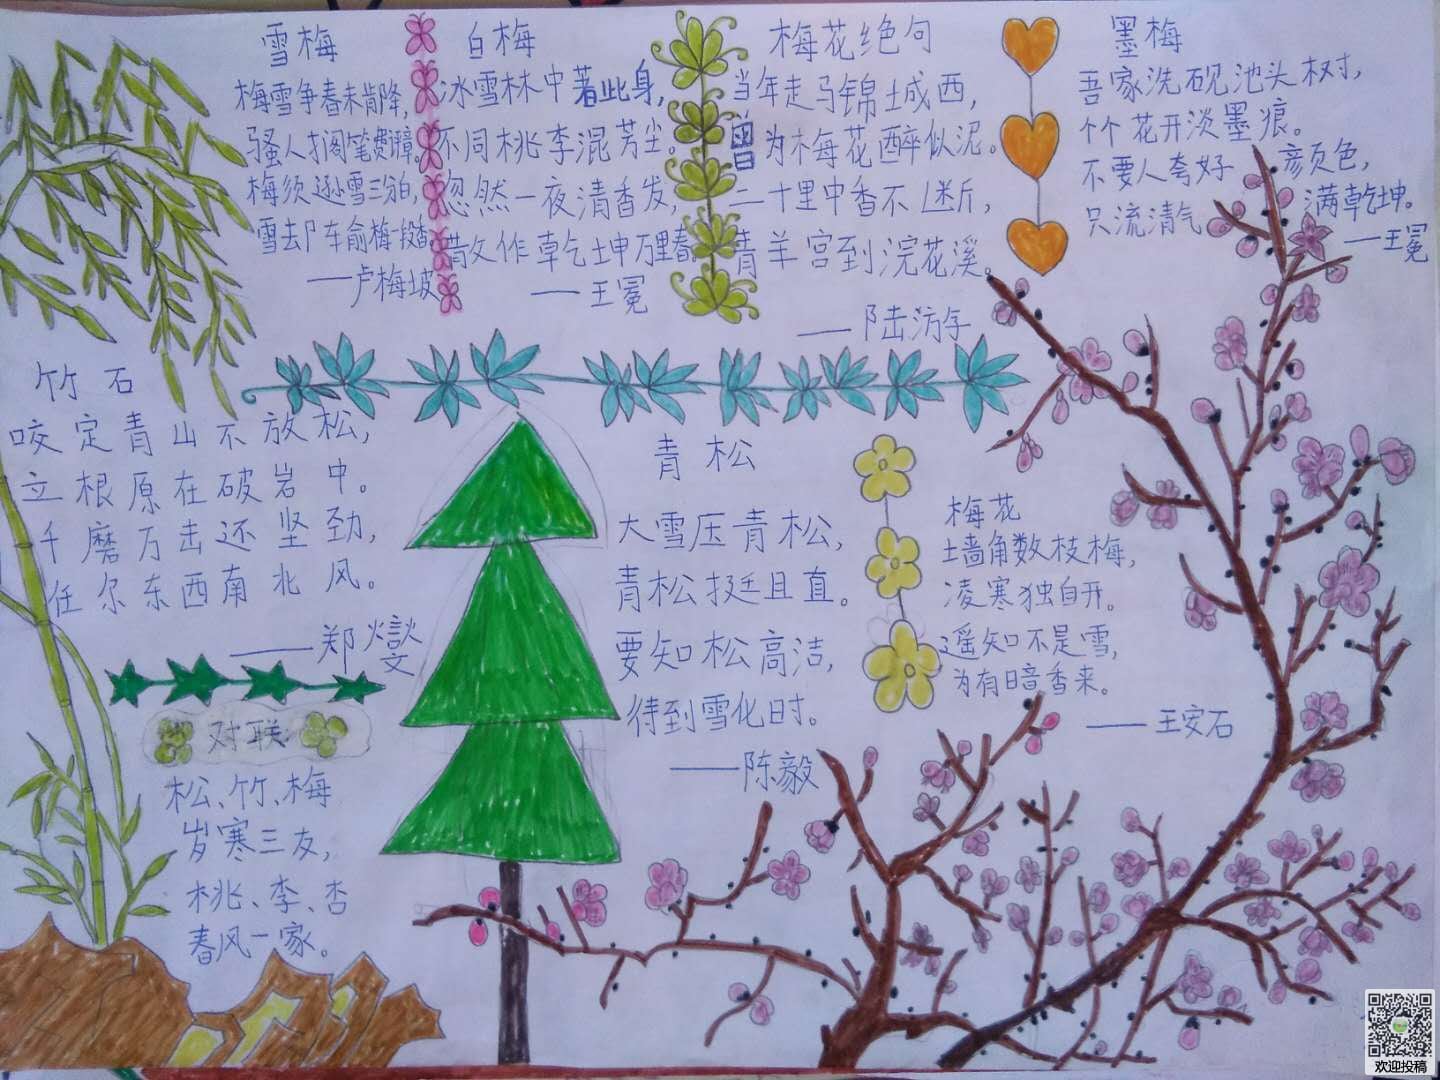 雪梅
梅雪争春未肯降，
骚人搁笔费评章。
梅须逊雪三分白，
雪去卩车俞梅一段香
——卢梅坡
白梅
冰雪林中著此身，
不同桃李混芳尘。
忽然一夜清香发，
散文作乾坤万里春
——王冕
梅花绝句
当年走马锦城西，
曾为梅花醉似泥。
二十里中香不断，
青羊宫到浣花溪。
——陆游
墨梅
吾家洗砚池头树，
个个花开淡墨痕。
不要人夸好颜色，
只流清气满乾坤。
——王冕
竹石
咬定青山不放松，
立根原在破岩中。
千磨万击还坚劲，
任尔东西南北风。
——郑燮
对联
松、竹、梅
岁寒三友，
桃、李、杏
春风一家。
青松
大雪压青松，
青松挺且直。
要知松高洁，
待到雪化时。
——陈毅
梅花
墙角数枝梅，
凌寒独自开。
遥知不是雪，
为有暗香来。
——王安石
欢迎投稿